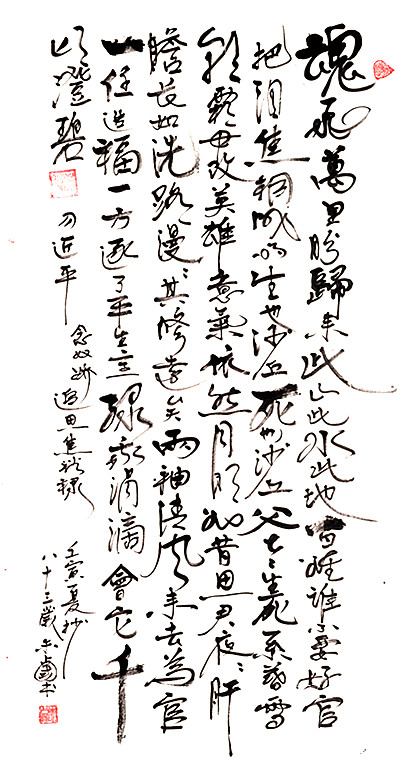 魂飛萬里盼歸來此山此水此地百姓誰不愛好官
把泪焦桐成雨生也沙丘死也沙丘父老生死系暮雪
朝霜毋改英雄意氣依然月明如昔思君夜〻肝
膽長如洗路漫〻其修遠矣兩袖清风来去為官
一任造福一方遂了平生意绿我涓滴會它千
頃澄碧
习近平
念奴娇 追思焦裕禄
壬寅夏抄
八十三歲